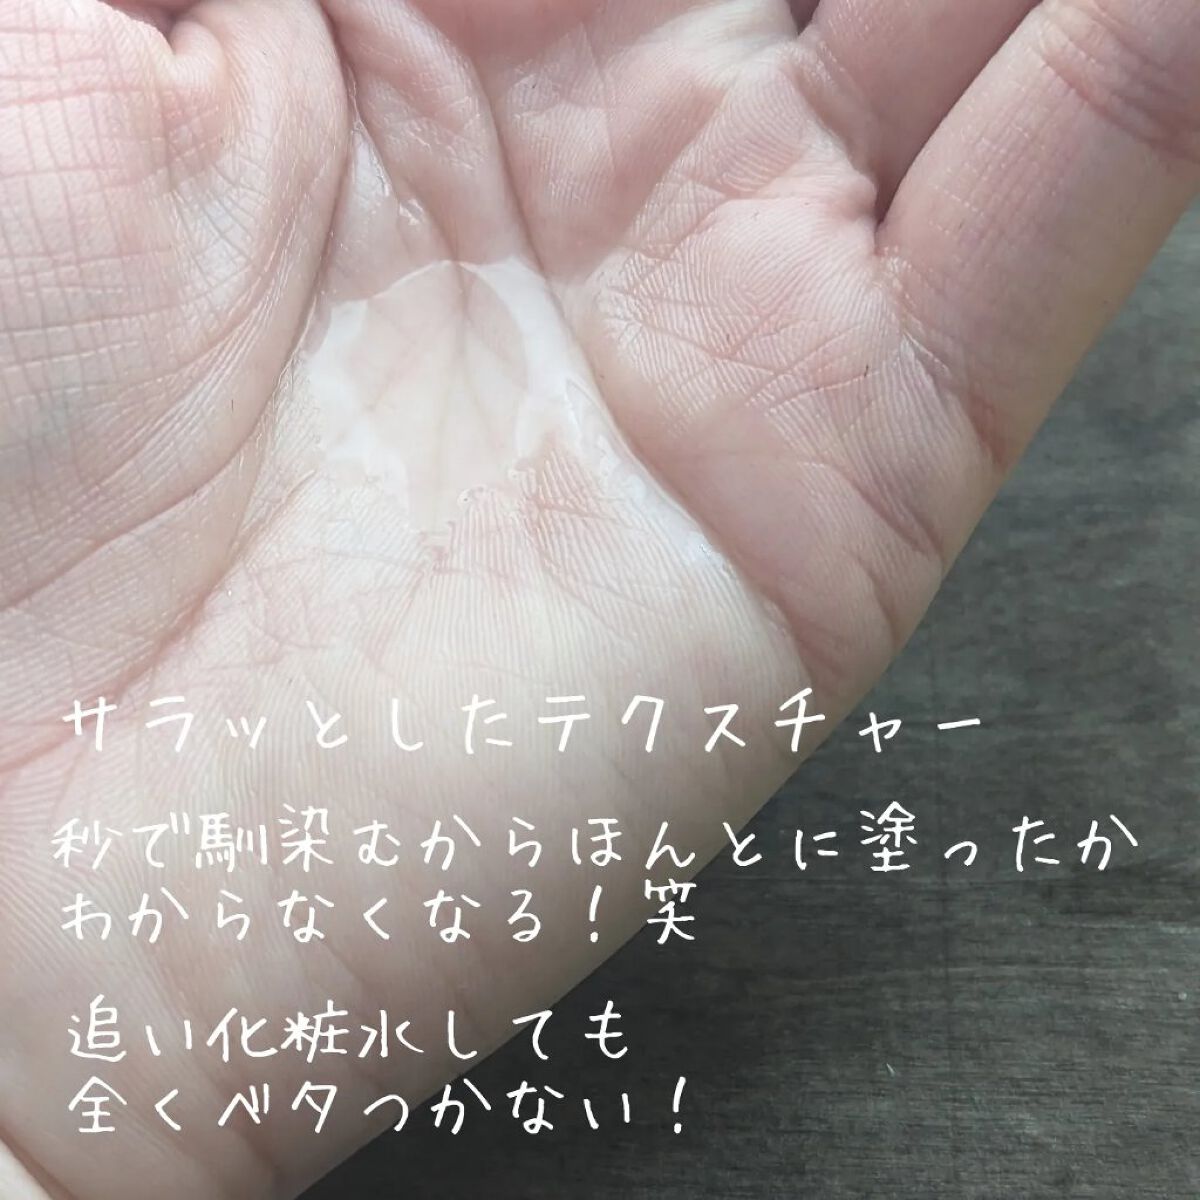 サラッとしたテクスチャー
秒で馴染むからほんとに塗ったか
わからなくなる！笑
追い化粧水しても
全くベタつかない！